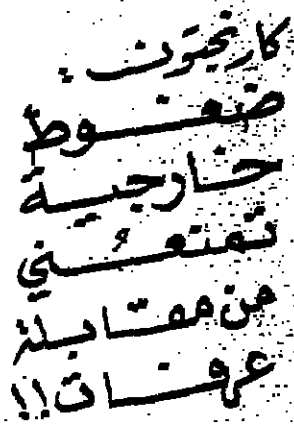 كارنجتون :
ضغوط
خارجية
تمنعني
من مقابلة
عرفات !!